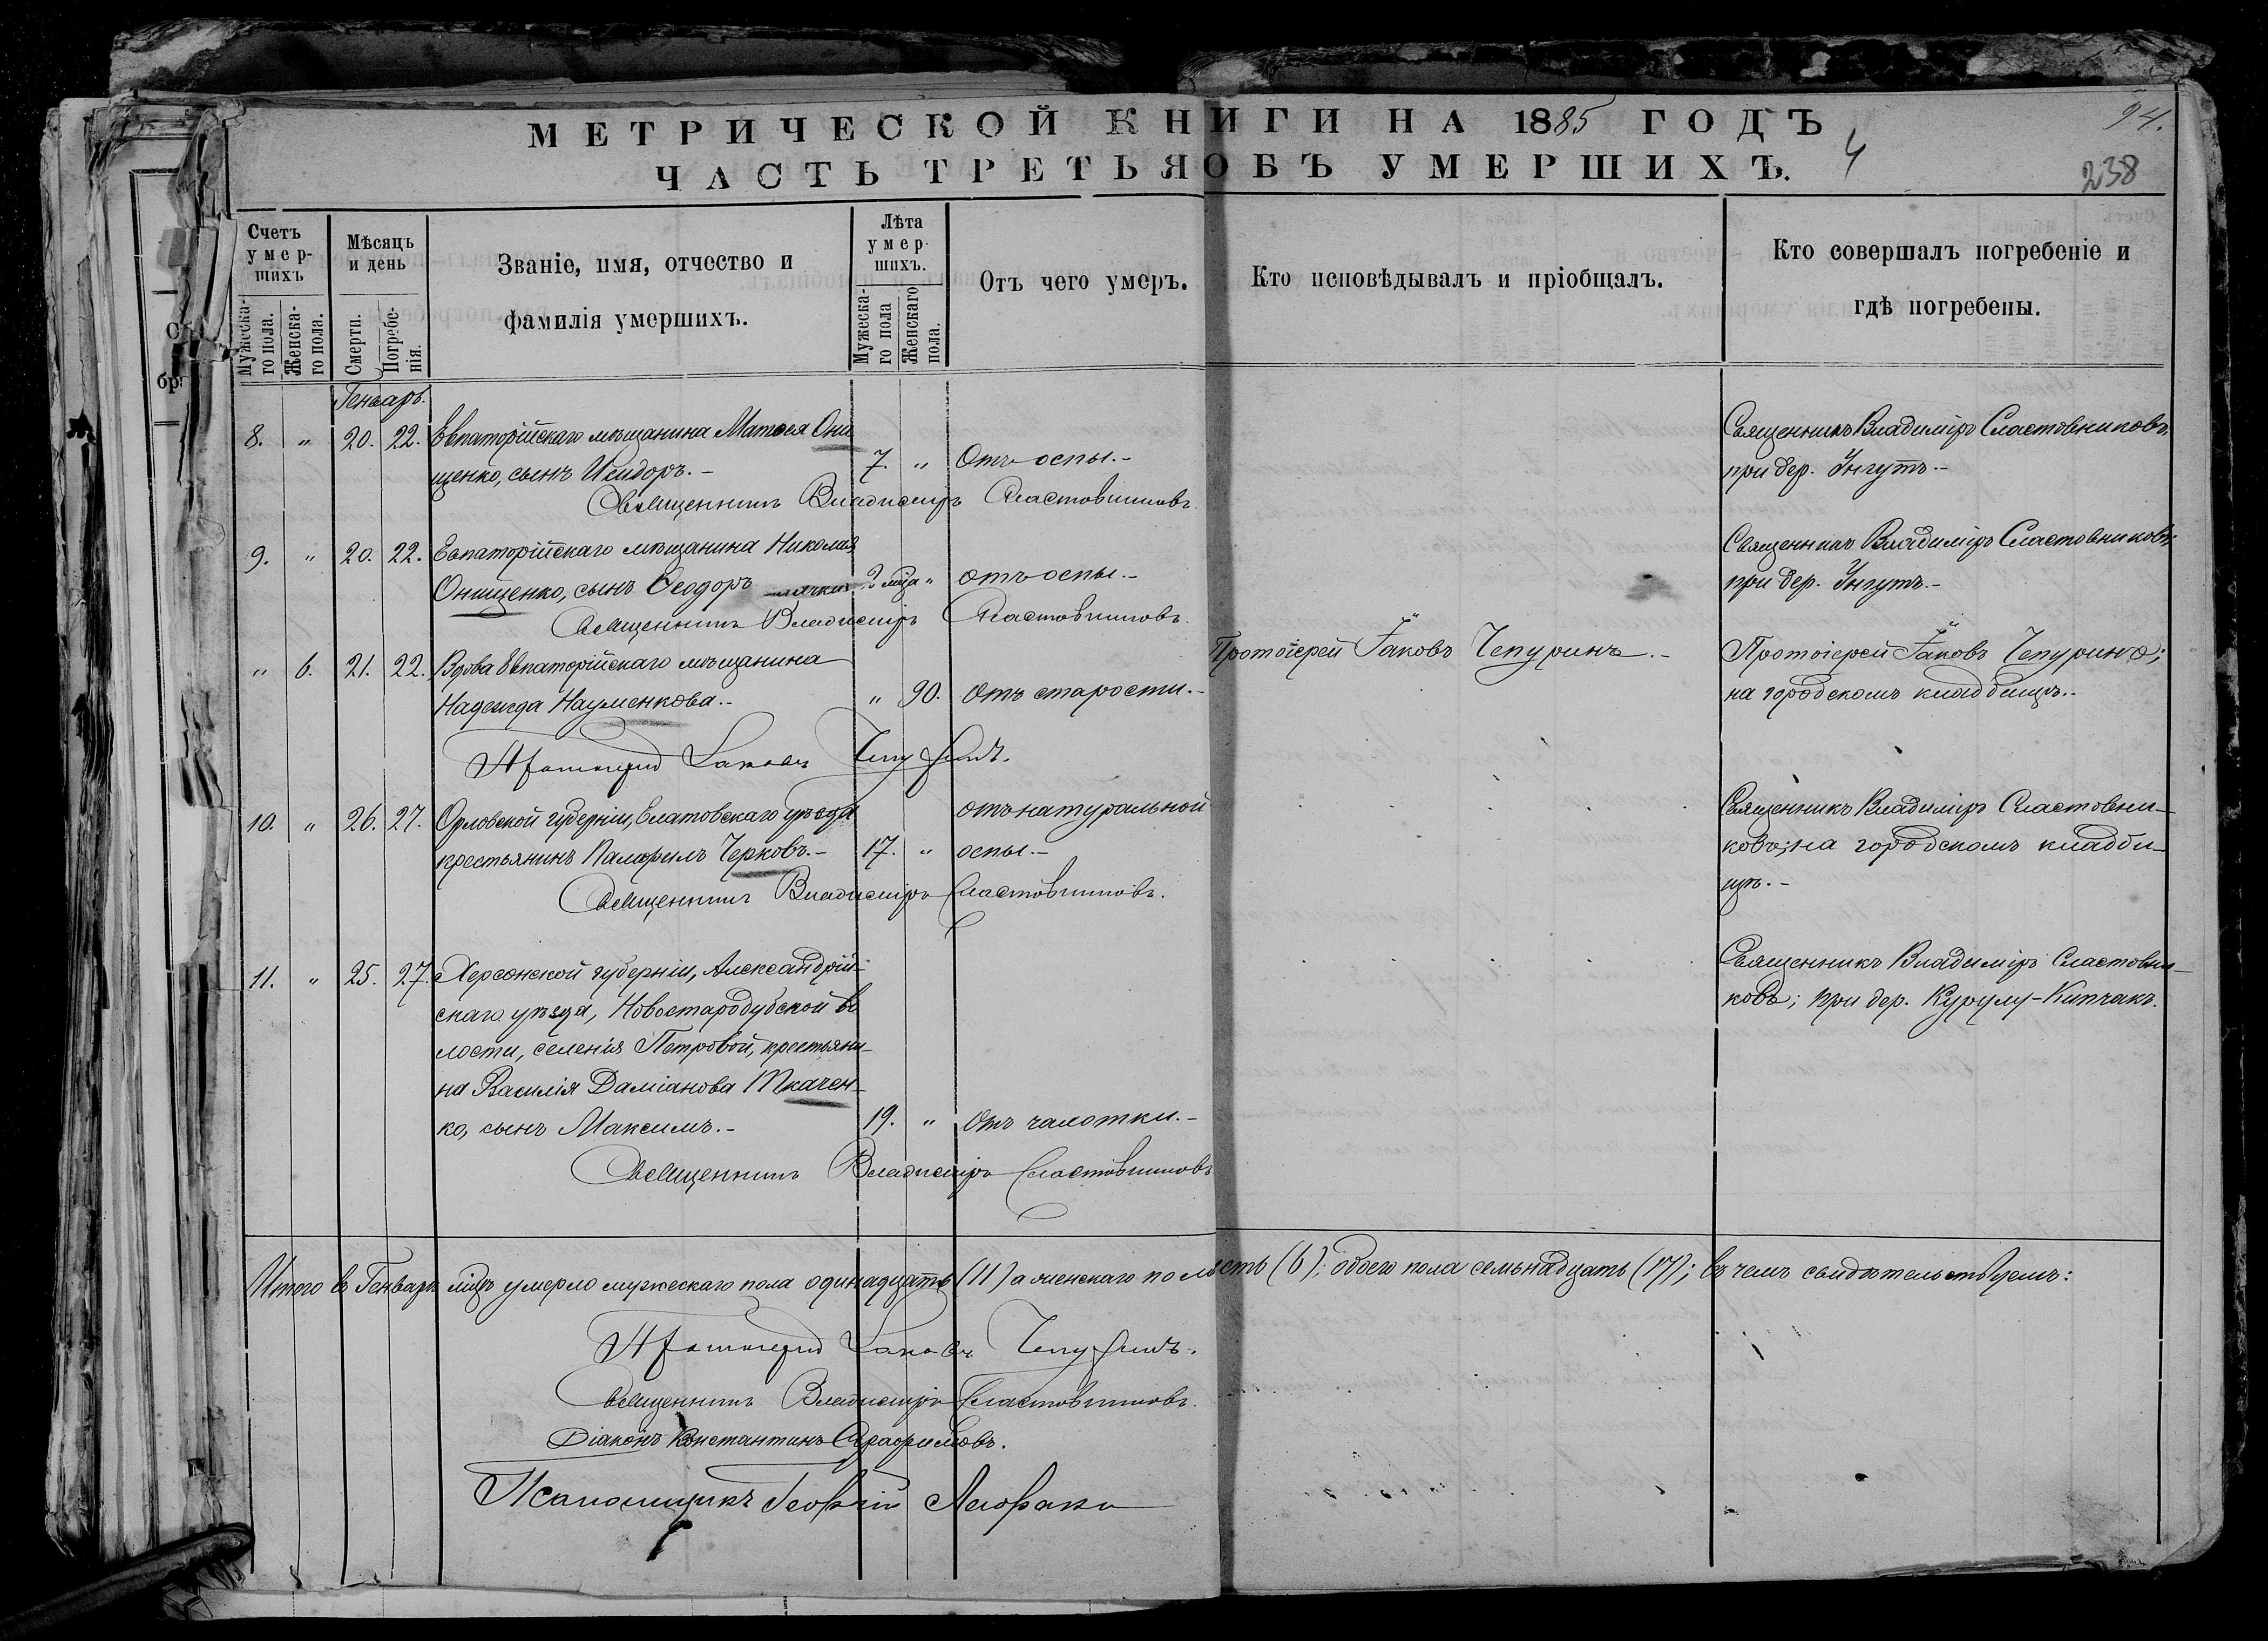 МЕТРИЧЕСКОЙ КНИГИ НА 1885 ГОДЪ
94.
ЧАСТЬ ТРЕТЬЯ ОБЪ УМЕРШИХЪ.
4
238
Счетъ умер-шихъ
Мужеска-го пола.
Женска-го пола.
Мѣсяцъ и день
Смерти.
Погребе-нія.
Званіе, имя, отчество и
фамилія умершихъ.
Лѣта умер-шихъ.
Мужеска-го пола
Женскаго пола.
Отъ чего умеръ.
Кто исповѣдывалъ и пріобщалъ.
Кто совершалъ погребеніе и
гдѣ погребены.
Генварь.
8. " 20. 22. Евпаторійскаго мѣщанина Матѳея Они
щенко, сынъ Исидоръ.- 7. " Отъ оспы.-
Священникъ Владиміръ Сластовниковъ,
при дер. Унгутъ.-
Священникъ Владиміръ Сластовниковъ.
9. " 20. 22. Евпаторійскаго мѣщанина Николая
Онищенко, сынъ Ѳеодоръ мѣца " отъ оспы.-
Священникъ Владиміръ Сластовниковъ;
при дер. Унгутъ.-
Священникъ Владиміръ Сластовниковъ.
" 6. 21. 22. Вдова Евпаторійскаго мѣщанина
Надежда Науменкова.- " 90. Отъ старости.-
Протоіерей Іаковъ Чепуринъ.-
Протоіерей Іаковъ Чепуринъ;
на городскомъ кладбищѣ.-
Протоіерей Іаковъ Чепуринъ.
10. " 26. 27. Орловской губерніи, Елатовскаго уѣзда
крестьянинъ Памфилъ Черковъ.- 17. " отъ натуральной
оспы.-
Священникъ Владиміръ Сластовни-
ковъ; на городскомъ кладби-
щѣ.-
Священникъ Владиміръ Сластовниковъ.
11. " 25. 27. Херсонской губерніи, Александрій-
скаго уѣзда, Новостародубской во
лости, селенія Петровой, крестьяни-
на Василія Даміанова Ткачен-
ко, сынъ Максимъ.- 19. " Отъ чахотки.-
Священникъ Владиміръ Сластовни-
ковъ; при дер. Курулу-Кипчакъ.
Священникъ Владиміръ Сластовниковъ
Итого въ Генварѣ мцѣ умерло мужескаго пола одинадцать (11) а женскаго пола шесть (6); обоего пола семьнадцать (17); въ чемъ свидѣтельствуемъ:
Протоіерей Іаковъ Чепуринъ.
Священникъ Владиміръ Сластовниковъ.
Діаконъ Константинъ Серафимовъ.
Псаломщикъ Георгій